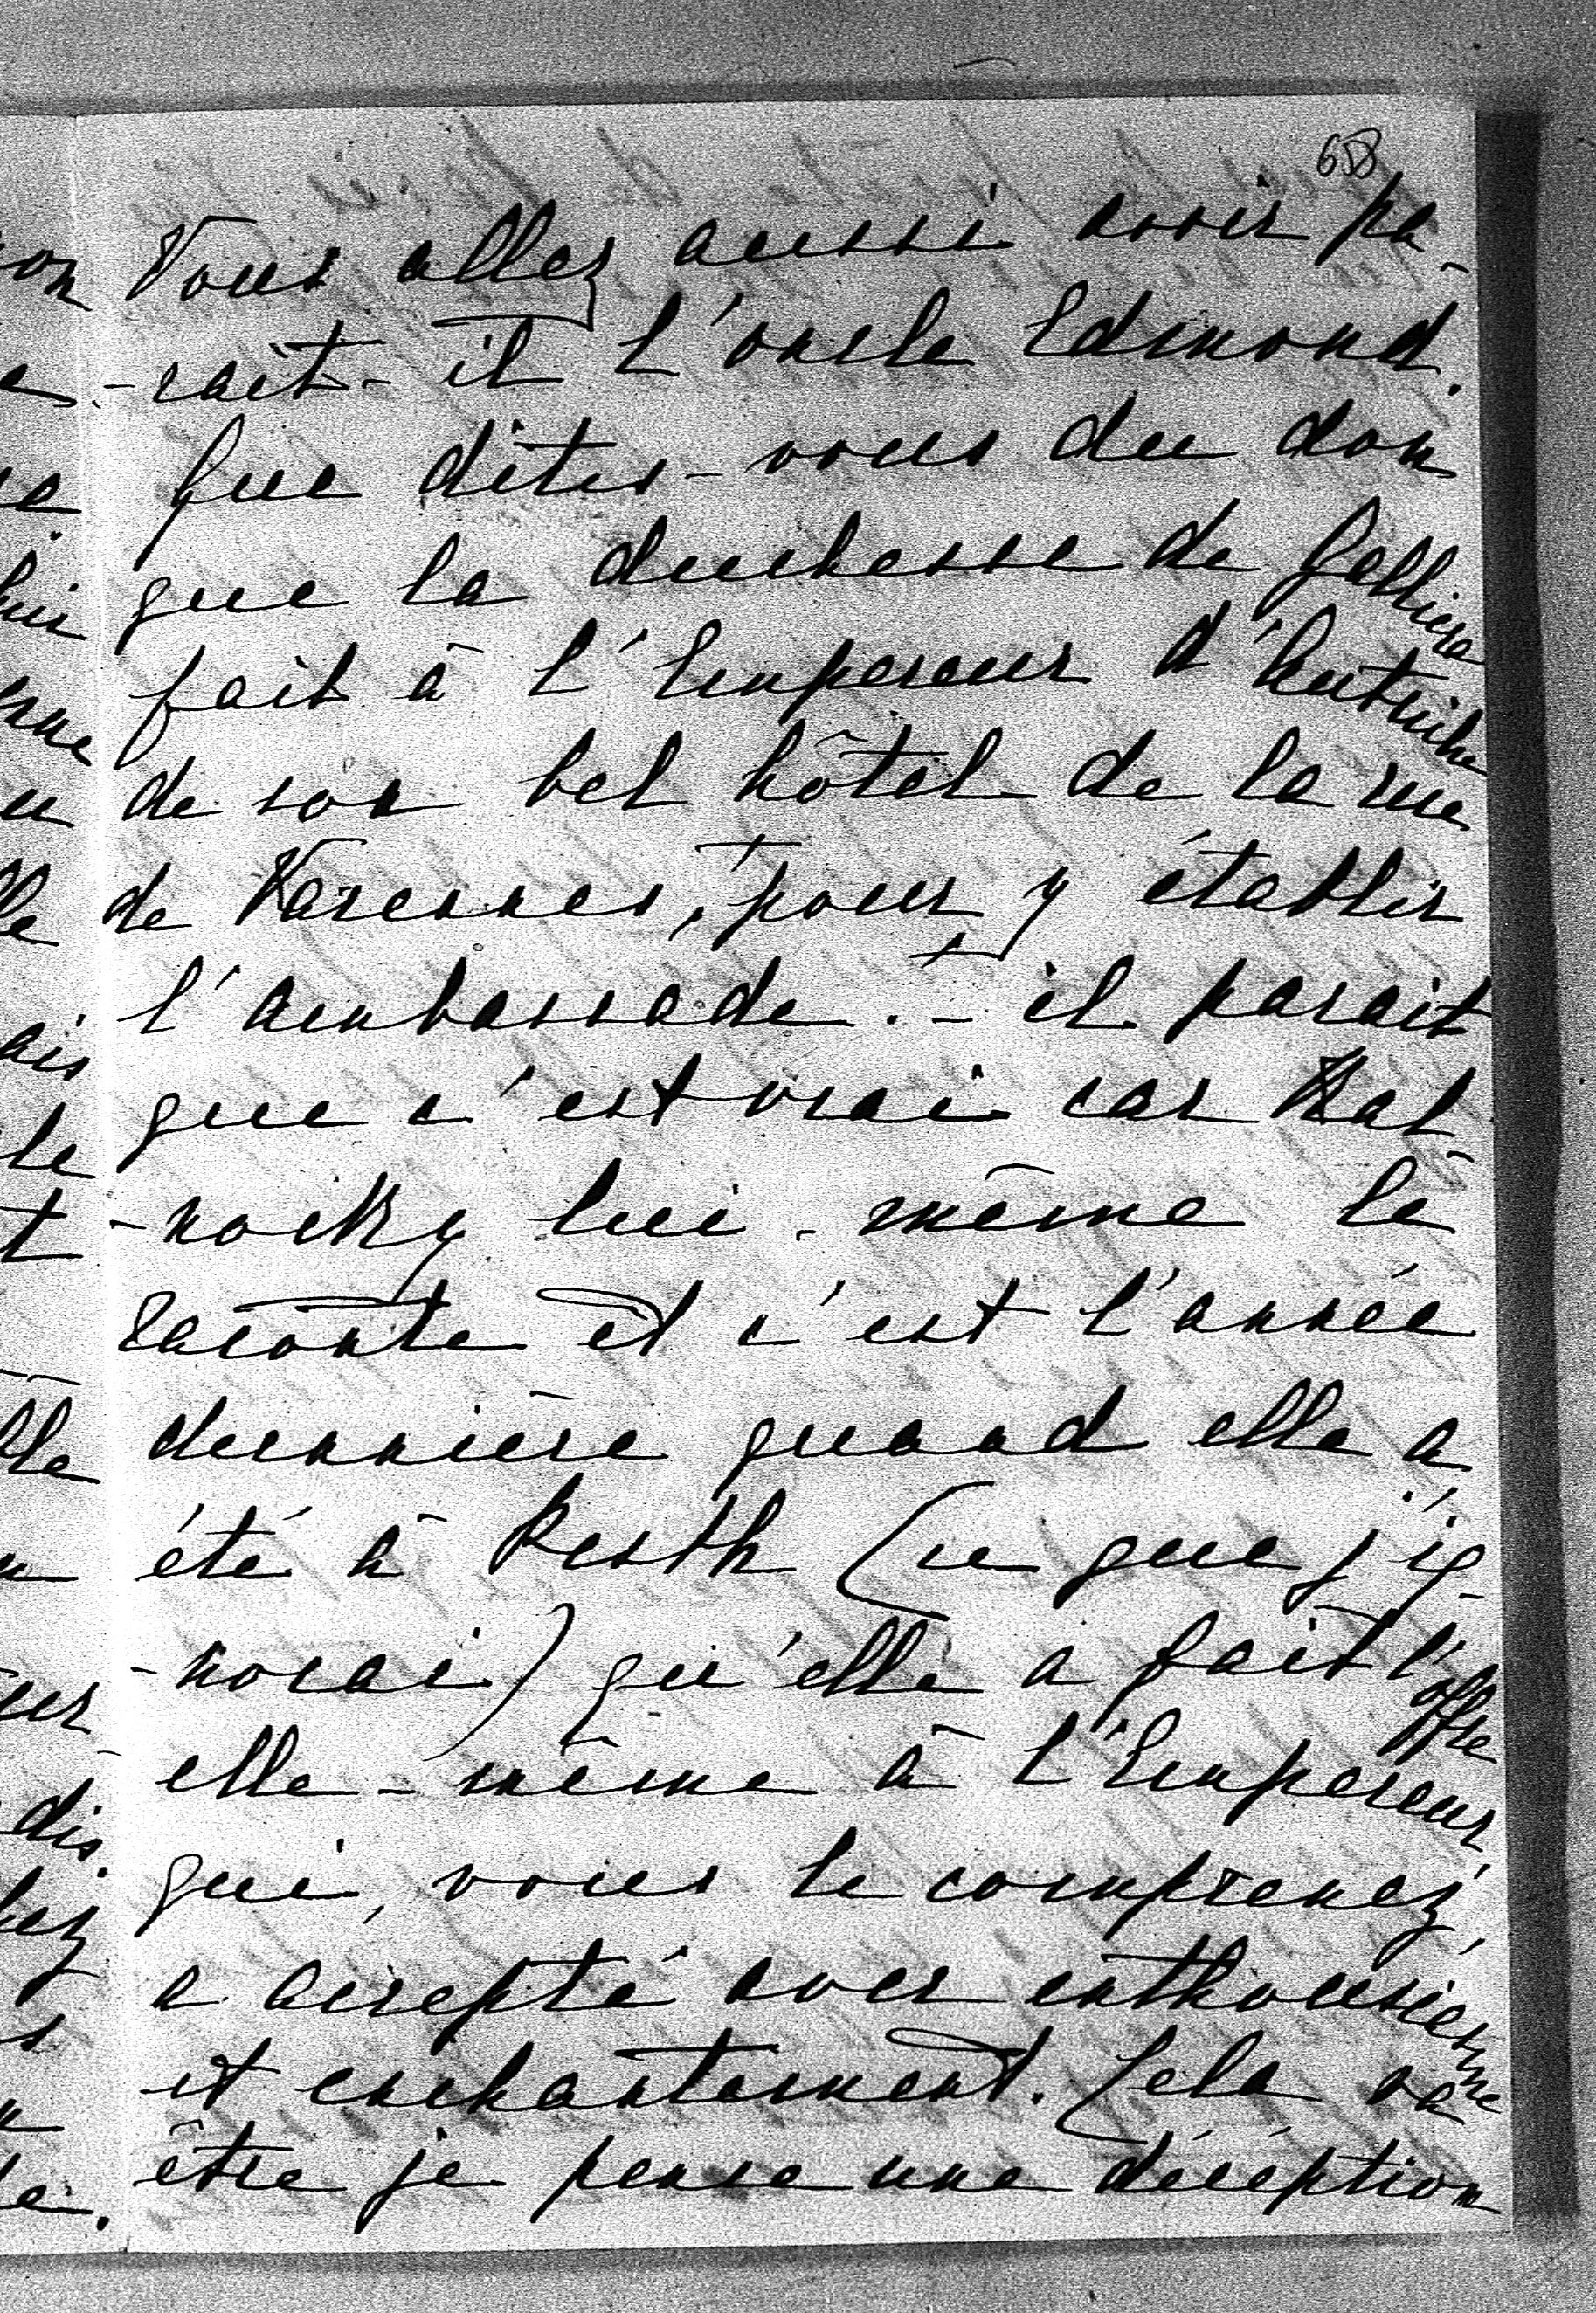 658
Vous allez aussi avoir pa-
-rait-il l'oncle Edmond.
Que dites-vous du don
que la duchesse de Galliera
fait à l'Empereur d'Autriche
de son bel hôtel de la rue
de Varennes, pour y établir
l'ambassade. - il parait
que c'est vrai car Kal-
-nocky lui-même le
raconte et c'est l'année
dernière quand elle a
été à Pesth (ce que j'ig-
-norai) qu'elle a fait l'offre
elle-même à l'Empereur
qui, vous le comprenez,
a accepté avec enthousiasme
et enchantement. Cela va
être je pense une déception